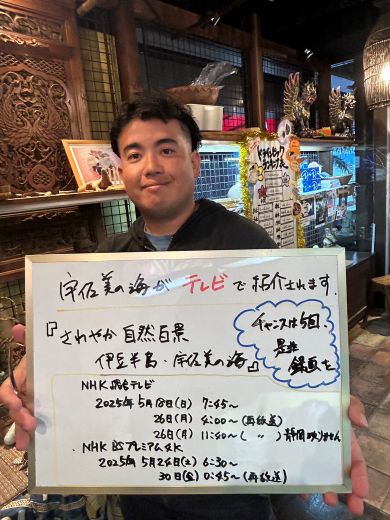 宇佐美の海がテレビで紹介されます。
『さわやか自然百景
伊豆半島・宇佐美の海』
チャンスは5回、
是非
録画を
NHK総合テレビ
2025年5月18日(日) 7:45〜
26日(月) 4:00〜(再放送)
26日(月) 11:40〜( 〃 )静岡映りません
・NHK BSプレミアム4K
2025年5月24日(土) 6:30〜
30日(金) 0:45〜(再放送)